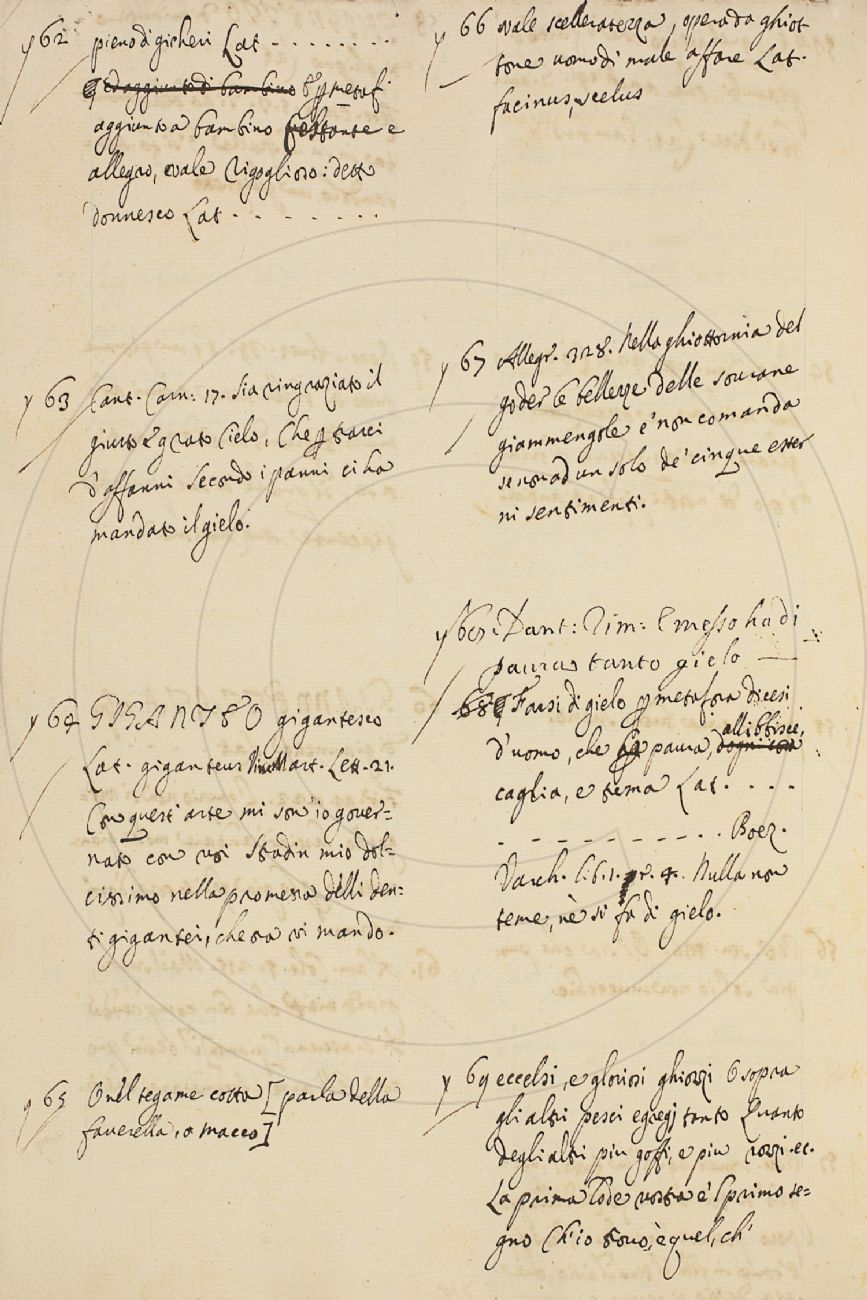 62 pieno di gicheri Lat. - - - - - - -
ed aggiunto di bambino & p metaf.
aggiunto a bambino festante e
allegro, vale Rigoglioso: detto
donnesco Lat. - - - - - - -
63 Cant. Carn: 17. Sia ringraziato il
giusto e grato Cielo, Che p trarci
d'affanni Secondo i panni ci ha
mandato il gielo.
64 GIGANTEO gigantesco
Lat. giganteus Vinc. Mart. Lett. 21.
Con quest'arte mi son'io gover=
nato con voi Stadin mio dol=
cissimo nella promessa delli den=
ti gigantei, che ora vi mando.
65 O nel tegame cotta [parla della
faverella, o macco]
66 vale scelleratezza, opera da ghiot
tone uomo di male affare Lat.
facinus, scelus
67 Allegr. 328. Nella ghiottornia del
goder le bellezze delle sovrane
giammengole e' non comanda
se non ad un solo de' cinque ester
ni sentimenti.
68. Dant: Rim: E messo ha di
paura tanto gielo —
68 Farsi di gielo p metafora dicesi
d'uomo, che p paura, allibbisce,
caglia, e tema Lat. - - - -
- - - - - - - - - - . Boez.
Varch. l. 6. 1. pr. 4. Nulla non
teme, nè si fa di gielo.
69 eccelsi, e gloriosi ghiozzi O sopra
gli altri pesci egregj tanto Quanto
degli altri piu goffi, e piu rozzi. ec.
La prima lode vostra è 'l primo se=
gno Ch'io trovo, è quel, ch'